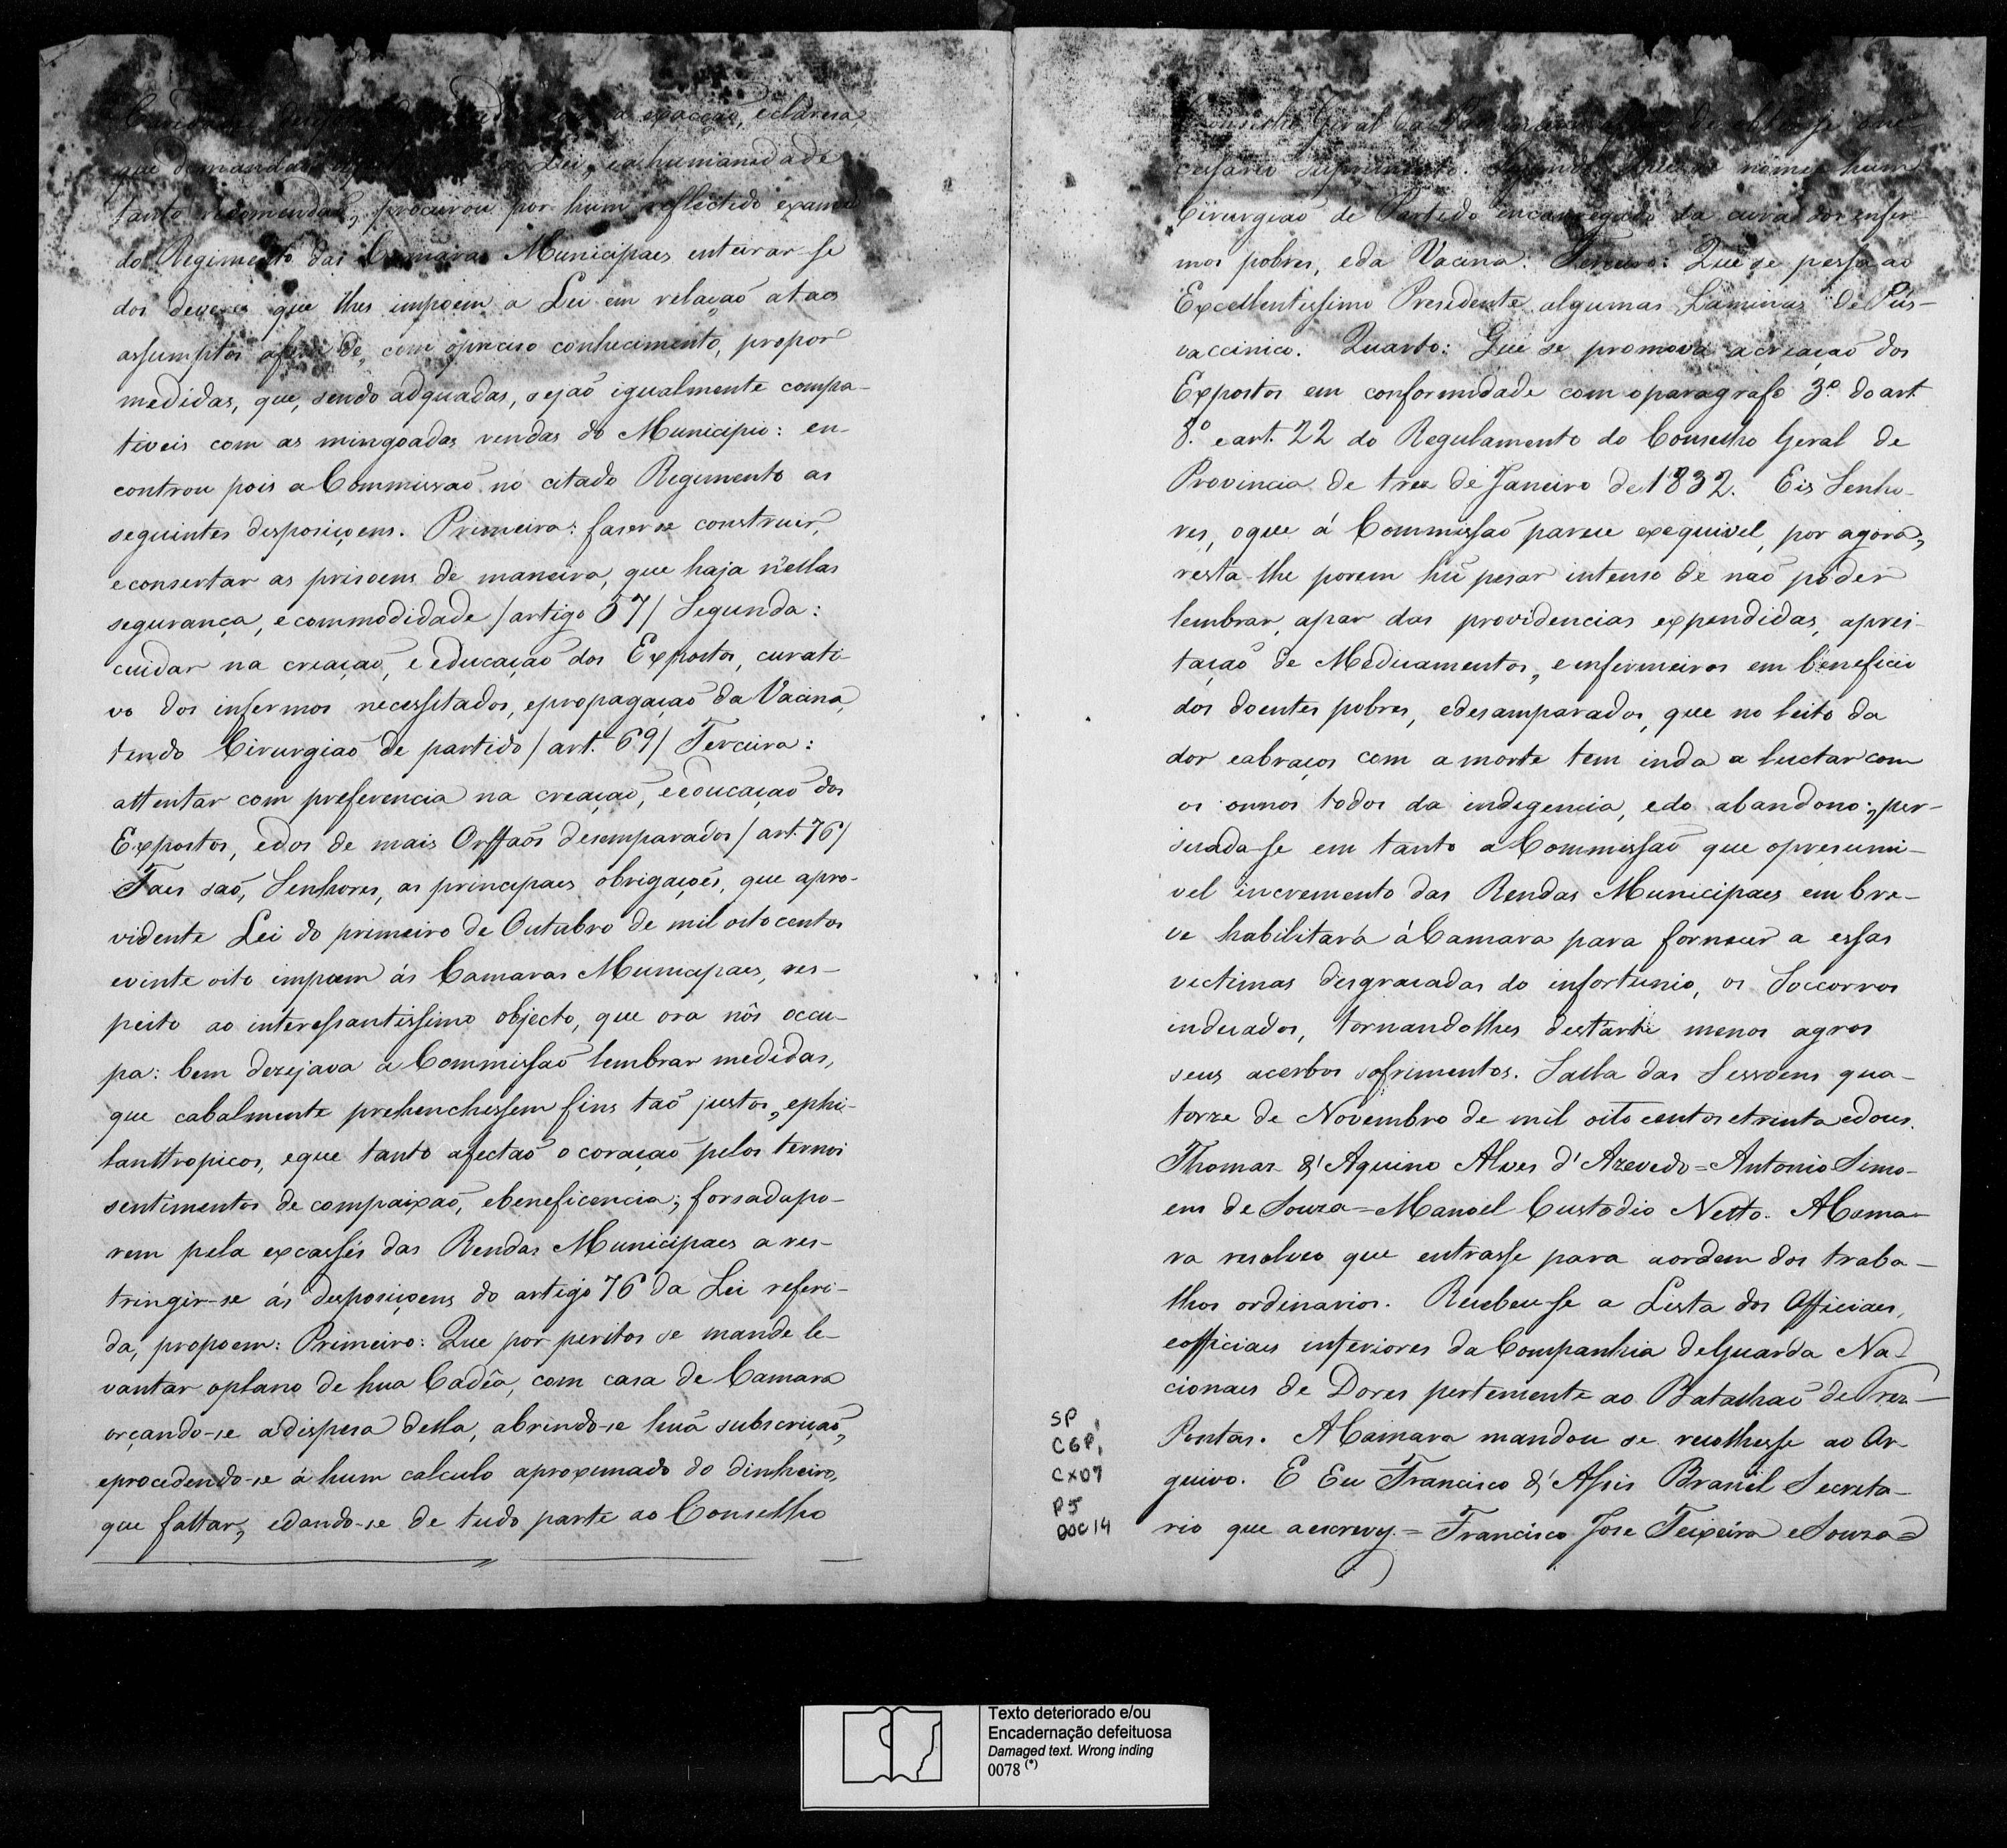 exacção, e clareza,
que demandaõ Lei, e a humanidade
tanto recomendaõ, procurou por hum reflectido exame
do Regimento das Camaras Municipaes enteirar-se
dos deveres que lhes impoem a Lei em relaçaõ a taes
assumptos afim de, com opreciso conhecimento, propor
medidas, que, sendo adquadas, sejaõ igualmente compa-
tiveis com as mingoadas rendas do Municipio: en-
controu pois a Commissaõ no citado Regimento as
seguintes disposiçoens. Primeira: faser-se construir,
e consertar as prisoens de maneira, que haja n'ellas
segurança, e commodidade /artigo 57/ Segunda:
cuidar na creaçaõ, e educaçaõ dos Expostos, curati-
vo dos infermos necessitados, e propagaçaõ da Vacina,
tendo Cirurgiaõ de partido /art. 69/ Terceira:
attentar com preferencia na creaçaõ, e educaçaõ dos
Expostos, e dos de mais Orffaõs desemparados /art. 76/
Taes saõ, Senhores, as principaes obrigaçoẽs, que apro-
vidente Lei do primeiro de Outubro de mil oito centos
e vinte oito impoem ás Camaras Municipaes, res-
peito ao interessantissimo objecto, que ora nós occu-
pa: bem dezejava a Commissaõ lembrar medidas,
que cabalmente prehenchessem fins taõ justos, e phi-
lanttropicos, e que tanto afectaõ o coraçaõ pelos ternos
sentimentos de compaixaõ, e beneficencia; forsada po-
rem pela excassés das Rendas Municipaes a res-
tringir-se ás desposiçoens do artigo 76 da Lei referi-
da, propoem: Primeiro: Que por peritos se mande le-
vantar oplano de hua Cadêa, com casa de Camara
orçando-se a dispesa della, abrindo-se huã subscriçaõ,
e procedendo-se á hum calculo aproxumado do dinheiro,
que faltar, e dando-se de tudo parte ao Conselho
Conselho Geral
cessario suprimento. nomeie hum
Cirurgiaõ de Partido encarregado da cura dos enfer-
mos pobres, e da Vacina. Terceiro: Que se pessa ao
Excellentissimo Presidente algumas Laminas de Pús-
vaccinico. Quarto: Que se promova a creaçaõ dos
Expostos em conformidade com o paragrafo 3º do art.
8º e art. 22 do Regulamento do Conselho Geral de
Provincia de trez de Janeiro de 1832. Eis Senho-
res, o que á Commissaõ parece exequivel, por agora,
resta-lhe porem hũ pesar intenso de naõ poder
lembrar, apar das providencias expendidas, apres-
taçaõ de Medicamentos, e infermeiros em beneficio
dos doentes pobres, e desamparados, que no leito da
dor e abraços com a morte tem inda a luctar com
os todos da indigencia, e do abandono; per-
suada-se em tanto a Commissaõ que opresumi-
vel incremento das Rendas Municipaes em bre-
ve habilitará á Camara para fornecer a essas
victimas desgraçadas do infortunio, os Soccorros
indicados, tornandolhes dest'arte menos agros
seus acerbos sofrimentos. Salla das Sessoens qua-
torze de Novembro de mil oito centos e trinta e dous.
Thomaz d'Aquino Alves d'Azevedo = Antonio Simo-
ens de Souza = Manoel Custodio Netto. A Cama-
ra resolveo que entrasse para a ordem dos traba-
lhos ordinarios. Recebeu-se a Lista dos Officiaes,
e officiaes inferiores da Companhia de Guarda Na-
cionaes de Dores pertencente ao Batalhaõ de Trez-
Pontas. A Camara mandou se recolhesse ao Ar-
quivo. E Eu Francisco d'Assis Brasiel Secreta-
rio que a escrevy. = Francisco Jose Teixeira e Souza =
SP
CGP1
CX07
P5
DOC 14
Texto deteriorado e/ou
Encadernação defeituosa
Damaged text. Wrong inding
0078 (*)